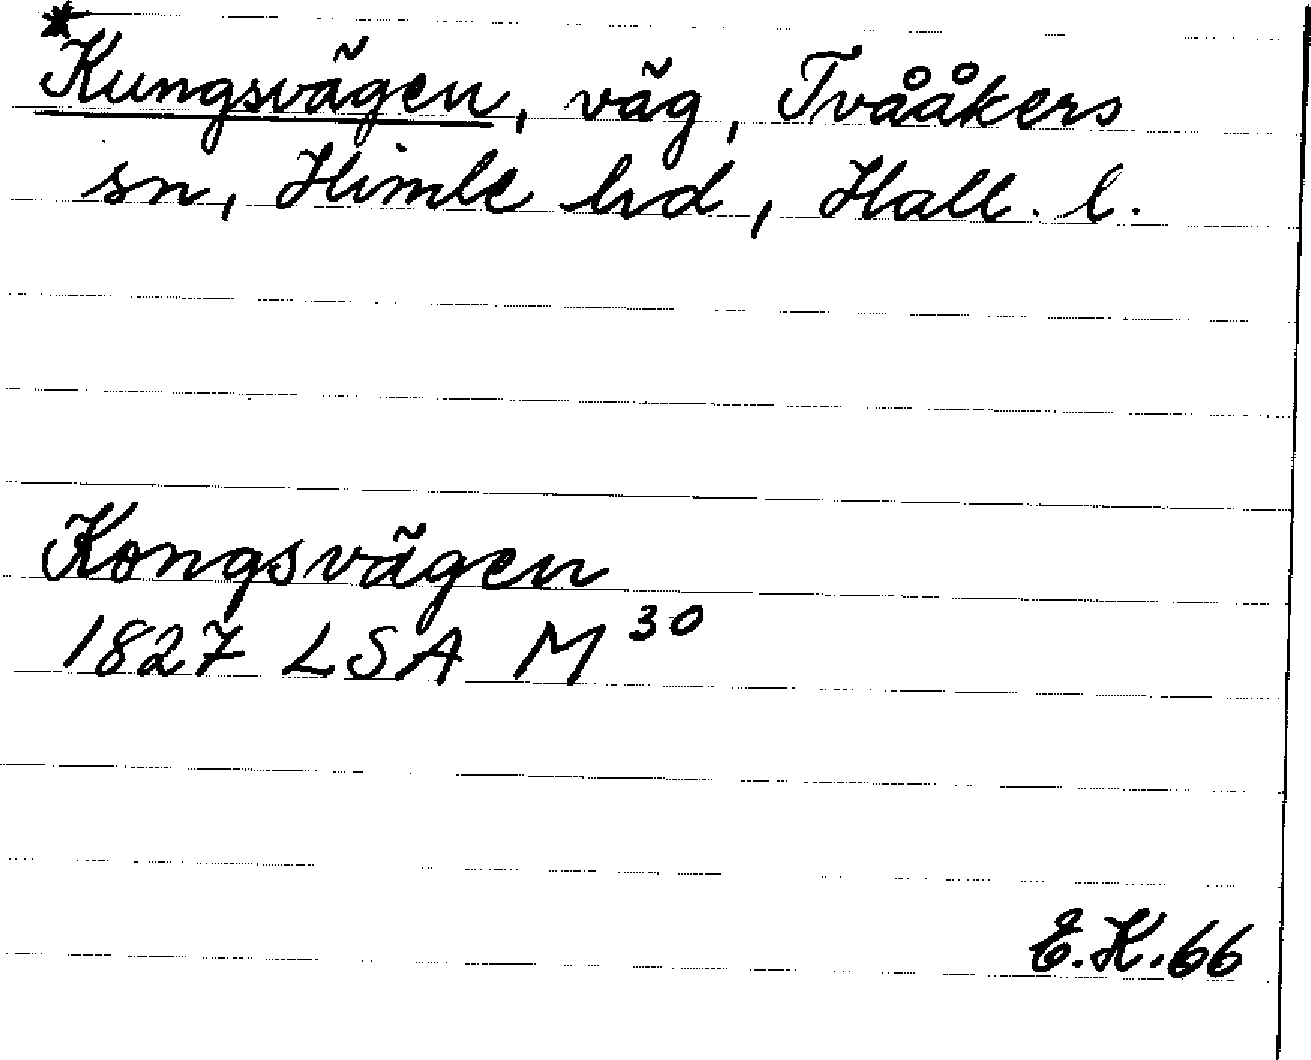 *Kungsvägen, väg, Tvååkers
sn, Himle hd, Hall. l.
Kongsvägen
1827 LSA M³⁰
E.K.66